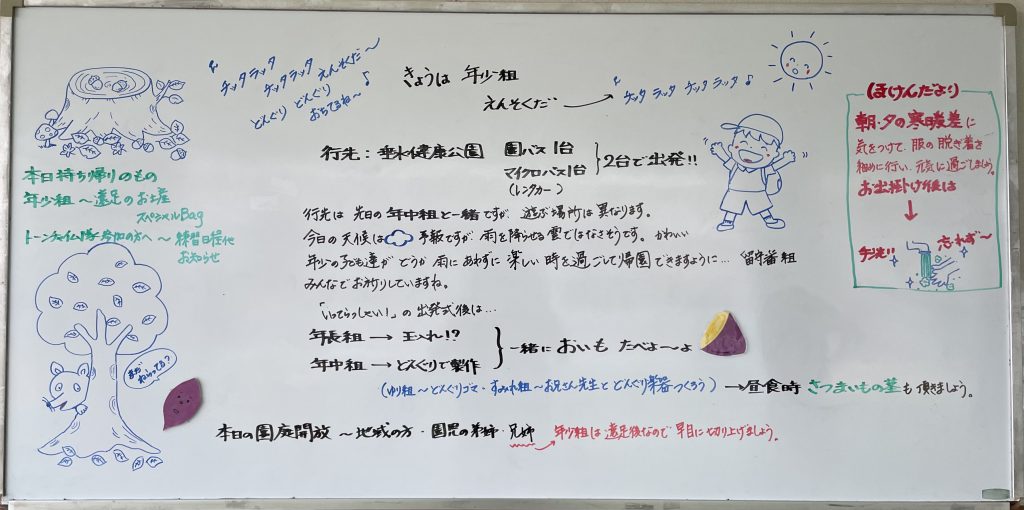 きょうは 年少組
えんそくだ
ケッタラッタ
ケッタラッタ えんそくだ～
どんぐり どんぐり
おちてるね～♪
ケッタ ラッタ ケッタ ラッタ♪
行先：垂水健康公園
園バス1台
マイクロバス1台
(レンタカー)
2台で出発!!
行先は 先日の年中組と一緒ですが 遊ぶ場所は異なります。
今日の天候は 予報ですが 雨を降らせる雲ではなさそうです。かわいい
年少の子ども達が どうか 雨にあわずに 楽しい時を過ごして帰園できますように… 留守番組
みんなでお祈りしていますね。
「いってらっしゃい！」の出発式後は…
年長組 → 玉入れ!?
年中組 → どんぐりで製作
一緒に おいも たべよ～よ
(ゆり組～どんぐりゴマ・すみれ組～お兄さん先生と どんぐり楽器つくろう)
→昼食時 さつまいもの茎も頂きましょう。
本日の園庭開放 ～地域の方・園児の弟妹・兄姉
年少組は遠足後なので 早目に切り上げましょう。
本日持ち帰りのもの
年少組～遠足のお土産
スペシャルBag
トーンチャイム隊参加の方へ～練習日程他
お知らせ
まだ
ねらってる?
ほけんだより
朝・夕の寒暖差に
気をつけて、服の脱ぎ着を
細めに行い、元気に過ごしましょう
お出掛け後は
↓
手洗い!!
忘れず～